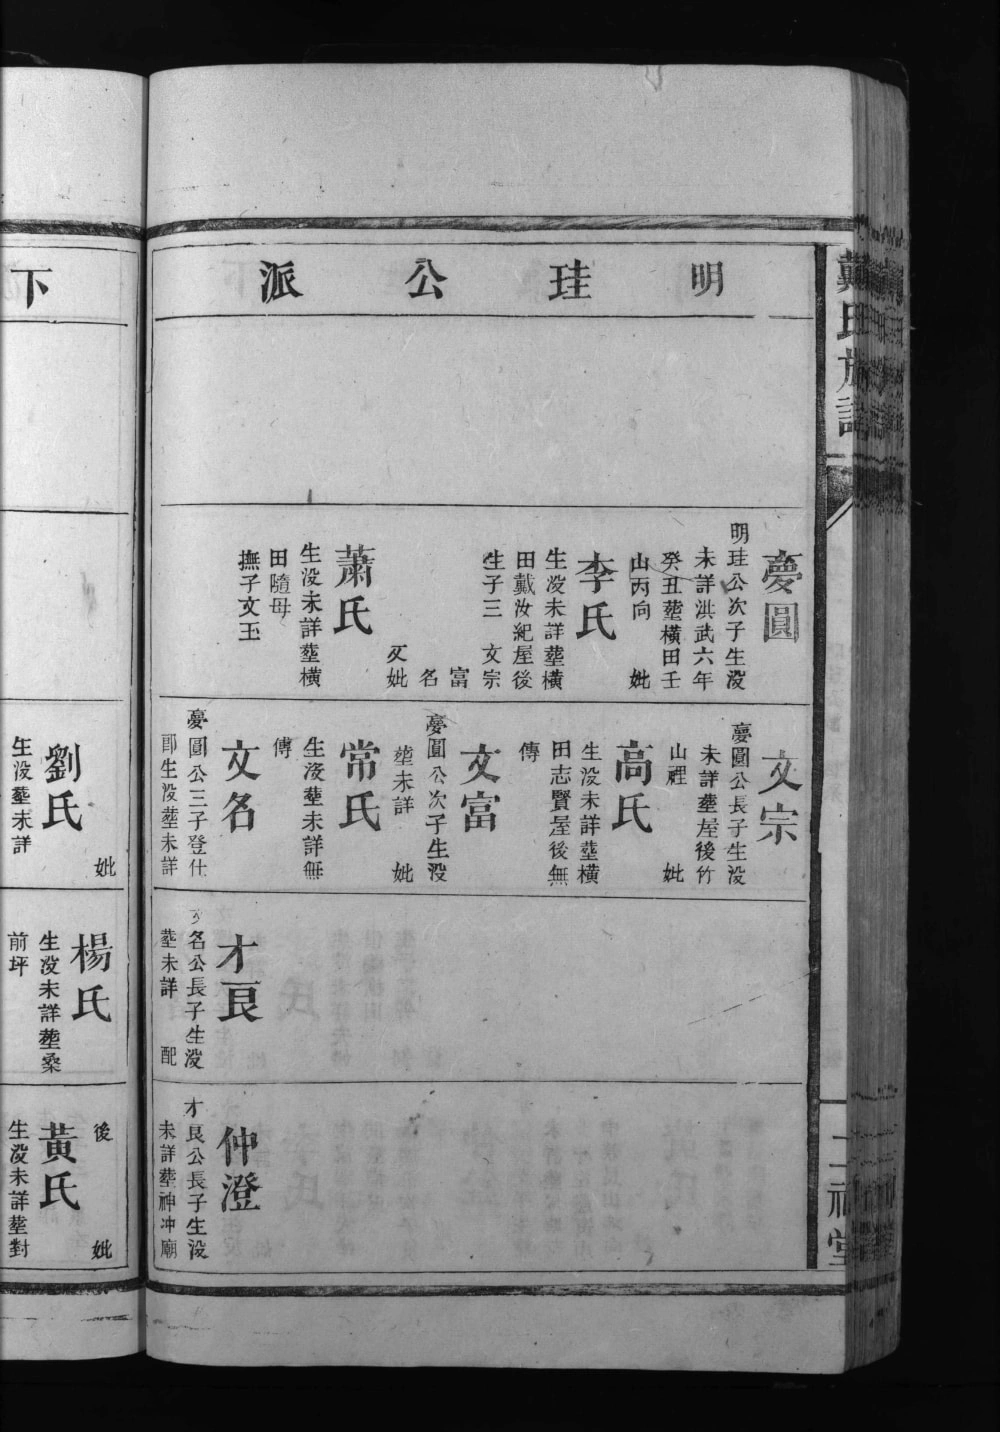 戴氏族譜
明珪公派
夢圓
明珪公次子生沒
未詳洪武六年
癸丑塟橫田壬
山丙向 妣
李氏
生沒未詳塟橫
田戴汝紀屋後
生子三 文宗
富
名
又妣
蕭氏
生沒未詳塟橫
田隨母
撫子文玉
文宗
夢圓公長子生沒
未詳塟屋後竹
山裡 妣
高氏
生沒未詳塟橫
田志賢屋後無
傳
文富
夢圓公次子生沒
塟未詳 妣
常氏
生沒塟未詳無
傳
文名
夢圓公三子登仕
郎生沒塟未詳
才良
文名公長子生沒
塟未詳 配
仲澄
才良公長子生沒
未詳塟神冲廟
下
妣
劉氏
生沒塟未詳
楊氏
生沒未詳塟桑
前坪
後 妣
黃氏
生沒未詳塟對